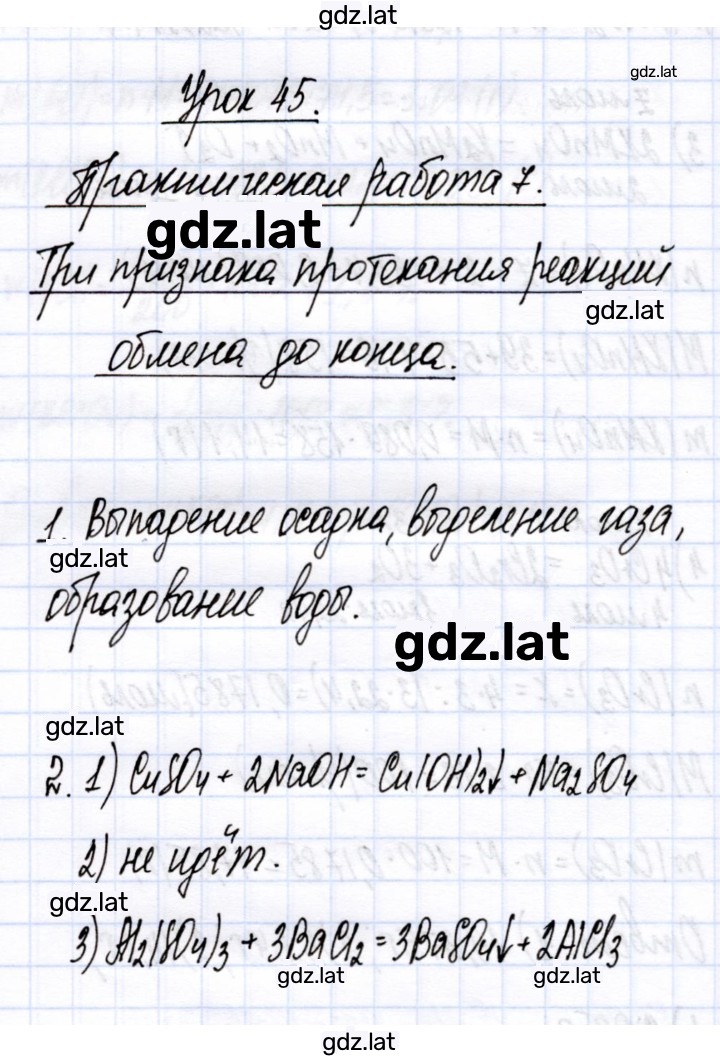 gdz.lat
gdz.lat
Урок 45.
Практическая работа 7.
gdz.lat
Три признака протекания реакций
gdz.lat
обмена до конца.
1. Выпадение осадка, выделение газа,
gdz.lat
образование воды.
gdz.lat
gdz.lat
2. 1) CuSO₄ + 2NaOH = Cu(OH)₂↓ + Na₂SO₄
2) не идёт.
gdz.lat
3) Al₂(SO₄)₃ + 3BaCl₂ = 3BaSO₄↓ + 2AlCl₃
gdz.lat gdz.lat
gdz.lat